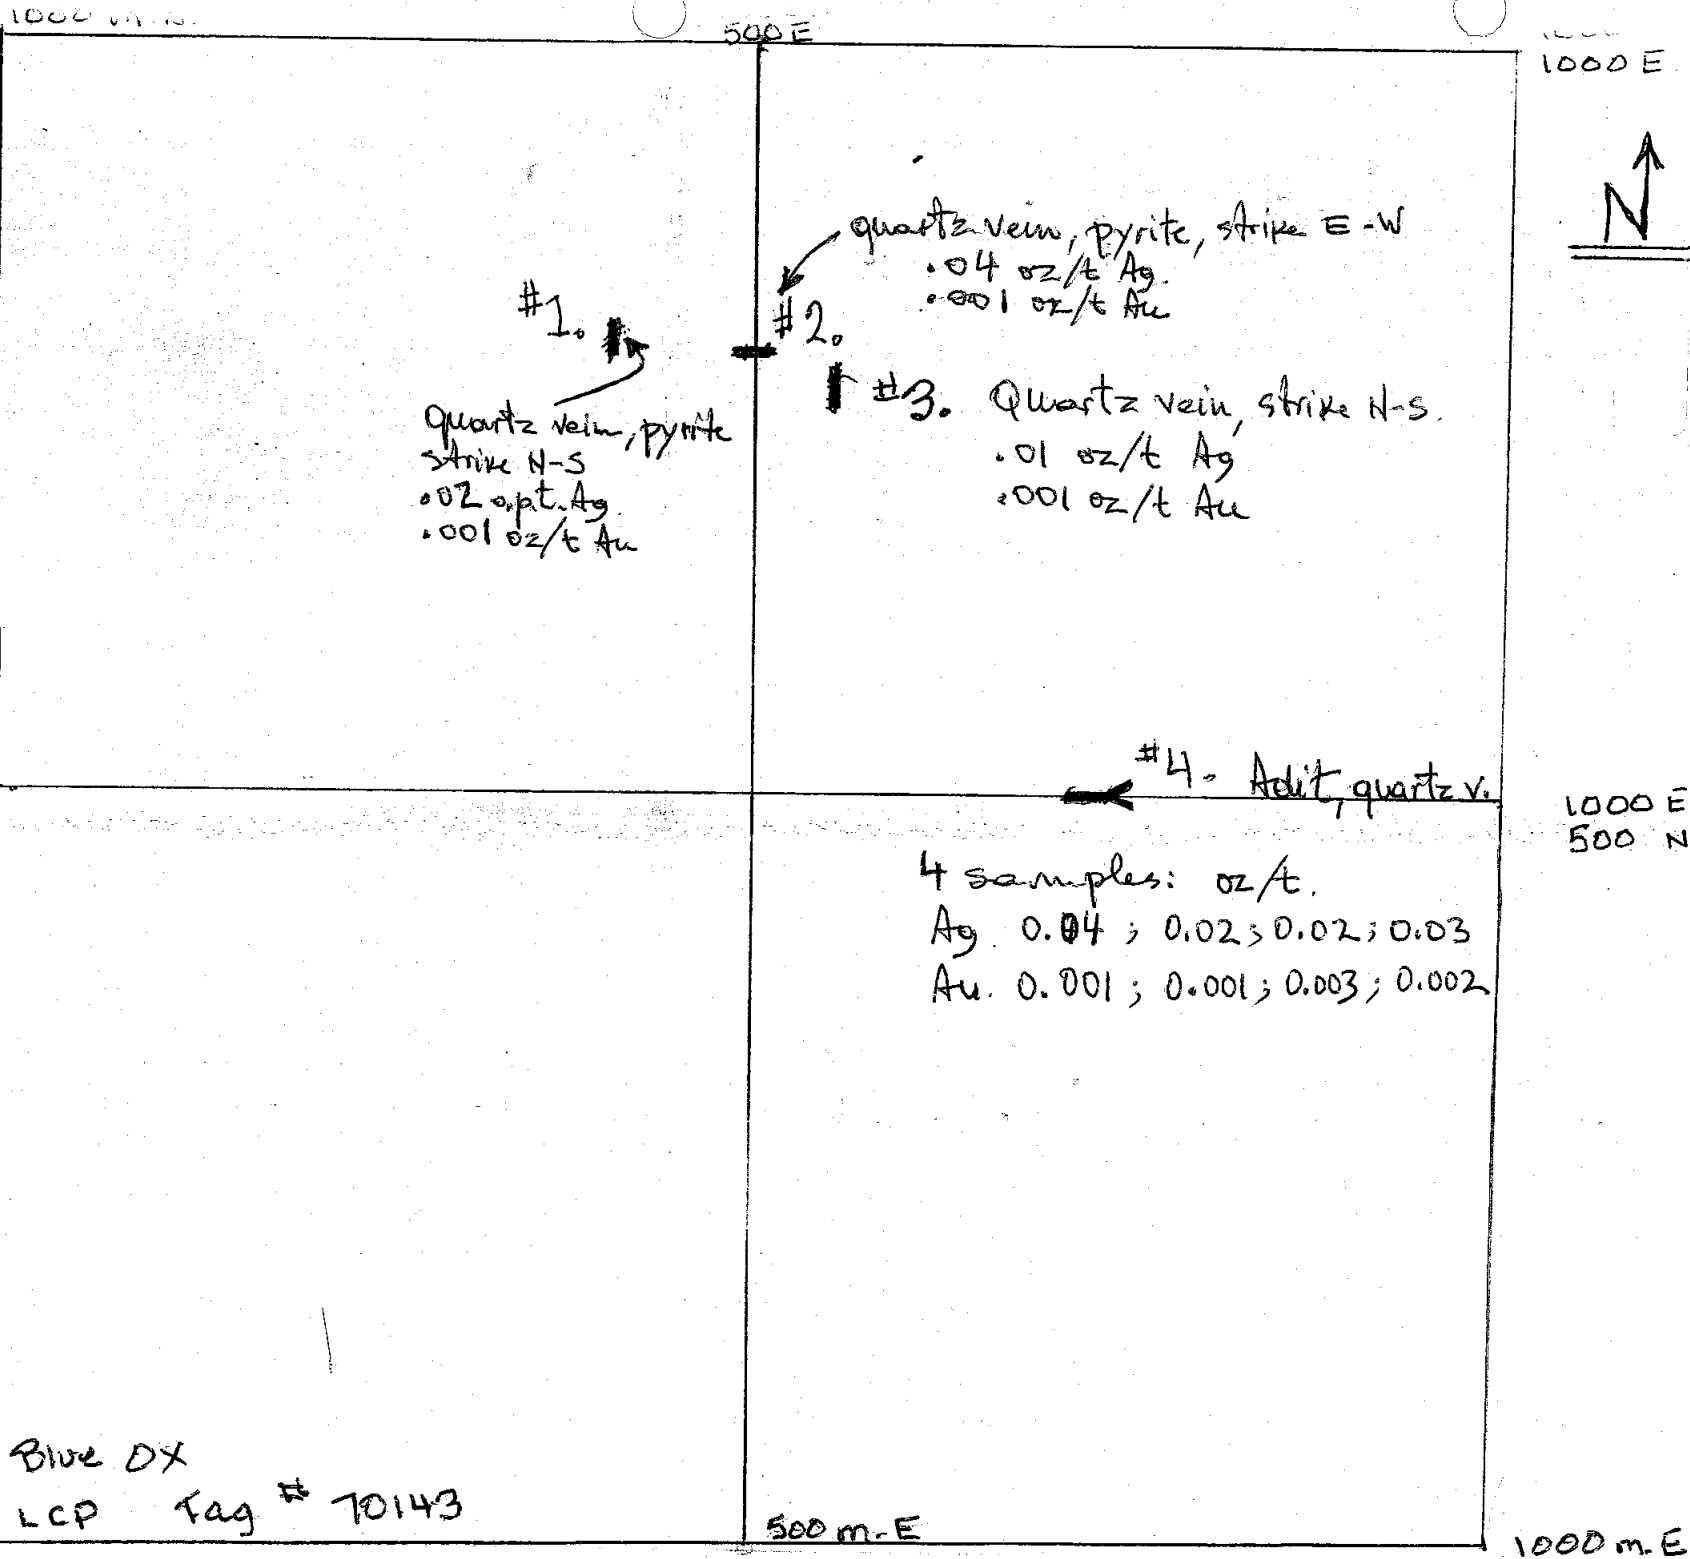 500 E
1000 E
N
quartz vein, pyrite, strike E-W
.04 oz/t Ag.
.001 oz/t Au
#1.
#2.
#3. Quartz vein, strike N-S.
.01 oz/t Ag
.001 oz/t Au
quartz vein, pyrite
strike N-S
.02 o.p.t. Ag.
.001 oz/t Au
#4. Adit, quartz v.
1000 E
500 N
4 samples: oz/t.
Ag. 0.04 ; 0.02; 0.02; 0.03
Au. 0.001 ; 0.001; 0.003; 0.002
Blue OX
LCP Tag # 70143
500 m. E
1000 m. E